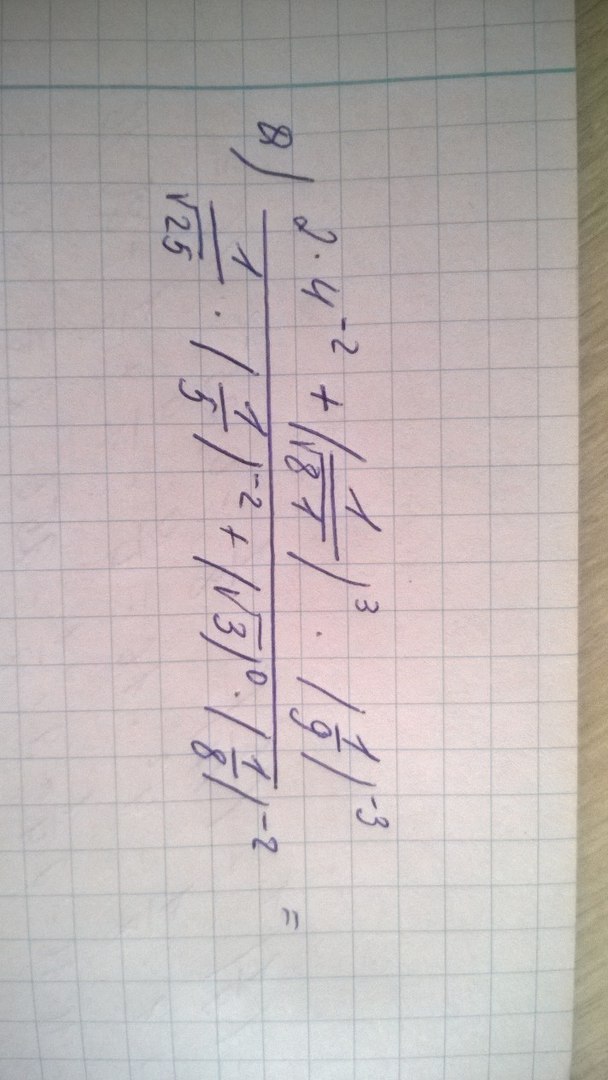 8) 2 · 4⁻² + (1/√81)³ · (1/9)⁻³
1/√25 · (1/5)⁻² + (√3)⁰ · (1/8)⁻² =